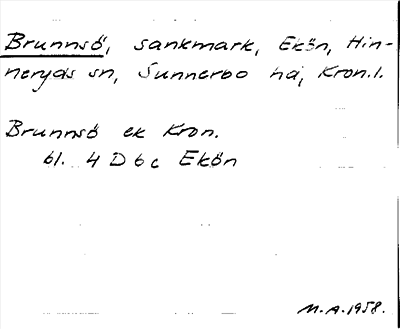 Brunnsö, sankmark, Ekön, Hin-
neryds sn, Sunnerbo hd, Kron.l.
Brunnsö ek Kron.
bl. 4 D 6 c Ekön
M.A. 1958.